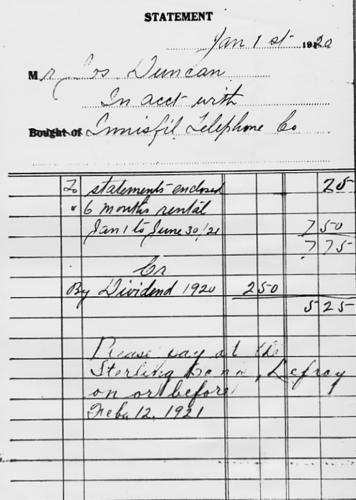 STATEMENT
Jan 1st 1920
Mr Jos Duncan
In acct with
Bought of Innisfil Telephone Co
To statements enclosed 25
" 6 months rental
Jan 1 to June 30/21 7 50
7 75
Cr
By Dividend 1920 2 50
5 25
Please pay at the
Sterling Bank, Lefroy
on or before
Feby 12, 1921